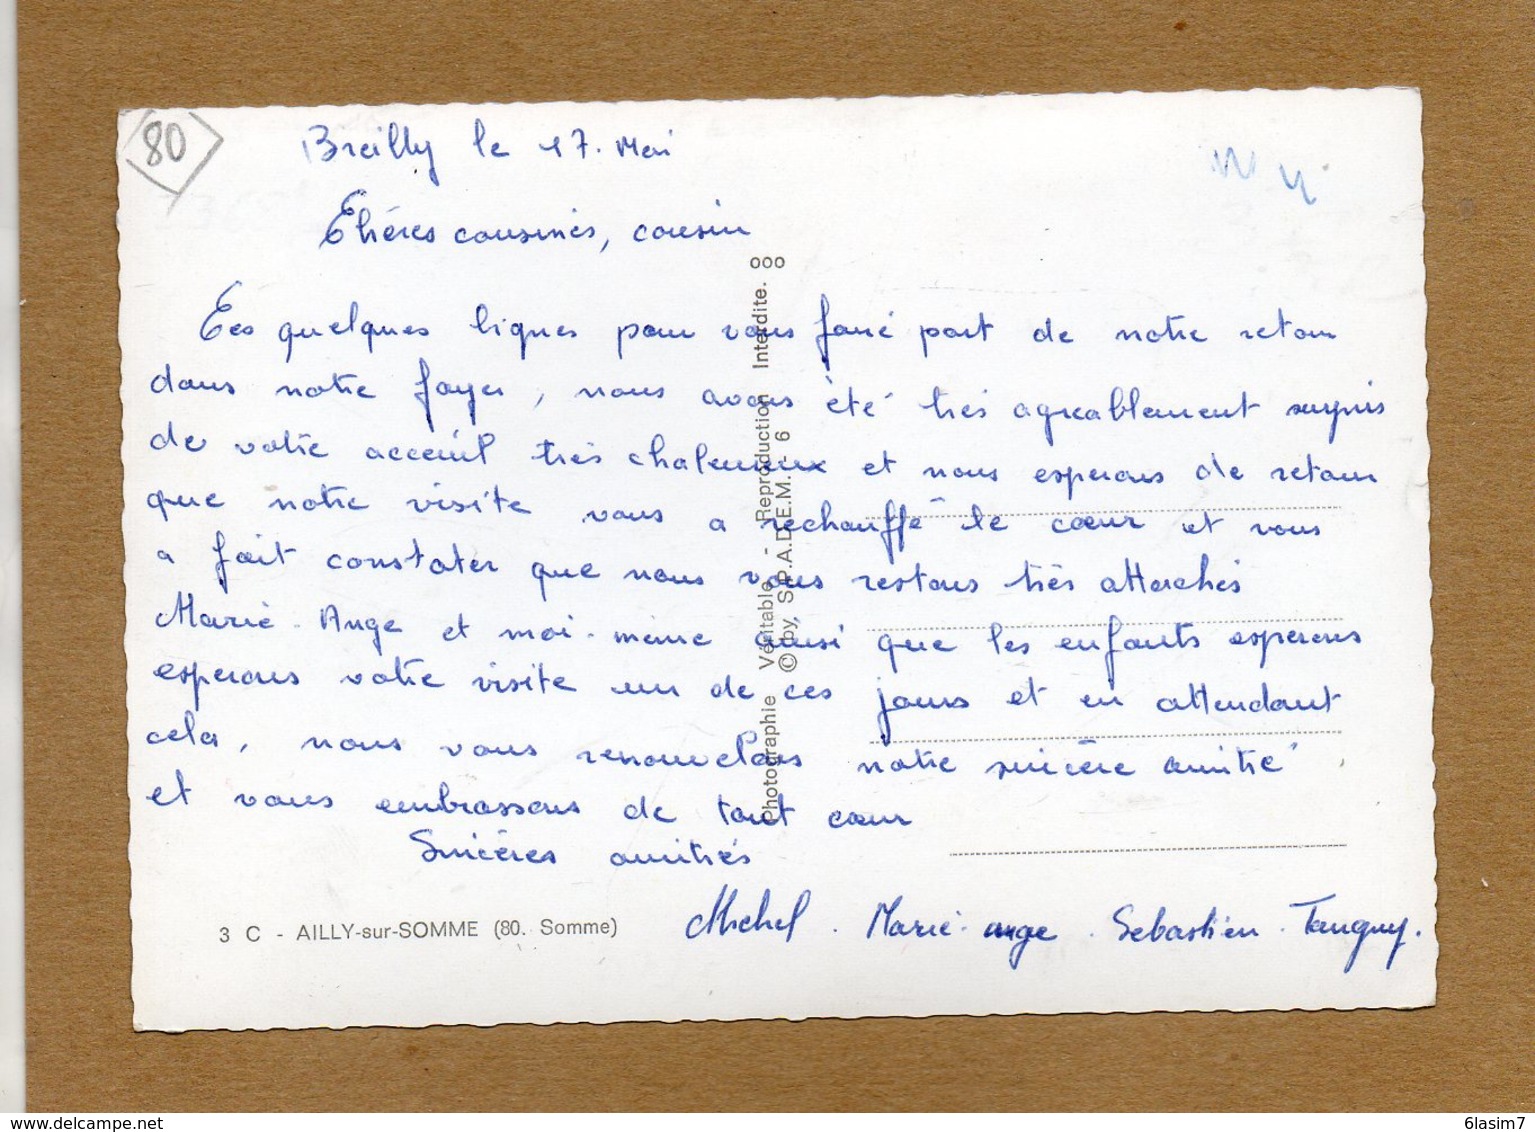 80
Breilly le 17. Mai
Chéres cousines, cousin
Ces quelques lignes pour vous faire part de notre retour
dans notre foyer, nous avons été très agreablement surpris
de votre acceuil très chaleureux et nous esperons de retour
que notre visite vous a rechauffé le cœur et vous
a fait constater que nous vous restons très attachés
Marie-Ange et moi-même ainsi que les enfants esperons
esperons votre visite un de ces jours et en attendant
cela, nous vous renouvelons notre sincère amitié
et vous embrassons de tout cœur
Sincères amitiés
Michel. Marie-ange. Sebastien. Tanguy.
3 C - AILLY-sur-SOMME (80. Somme)
Photographie Véritable - Reproduction Interdite. ooo
© by S.P.A.D.E.M. - 6
6lasim7